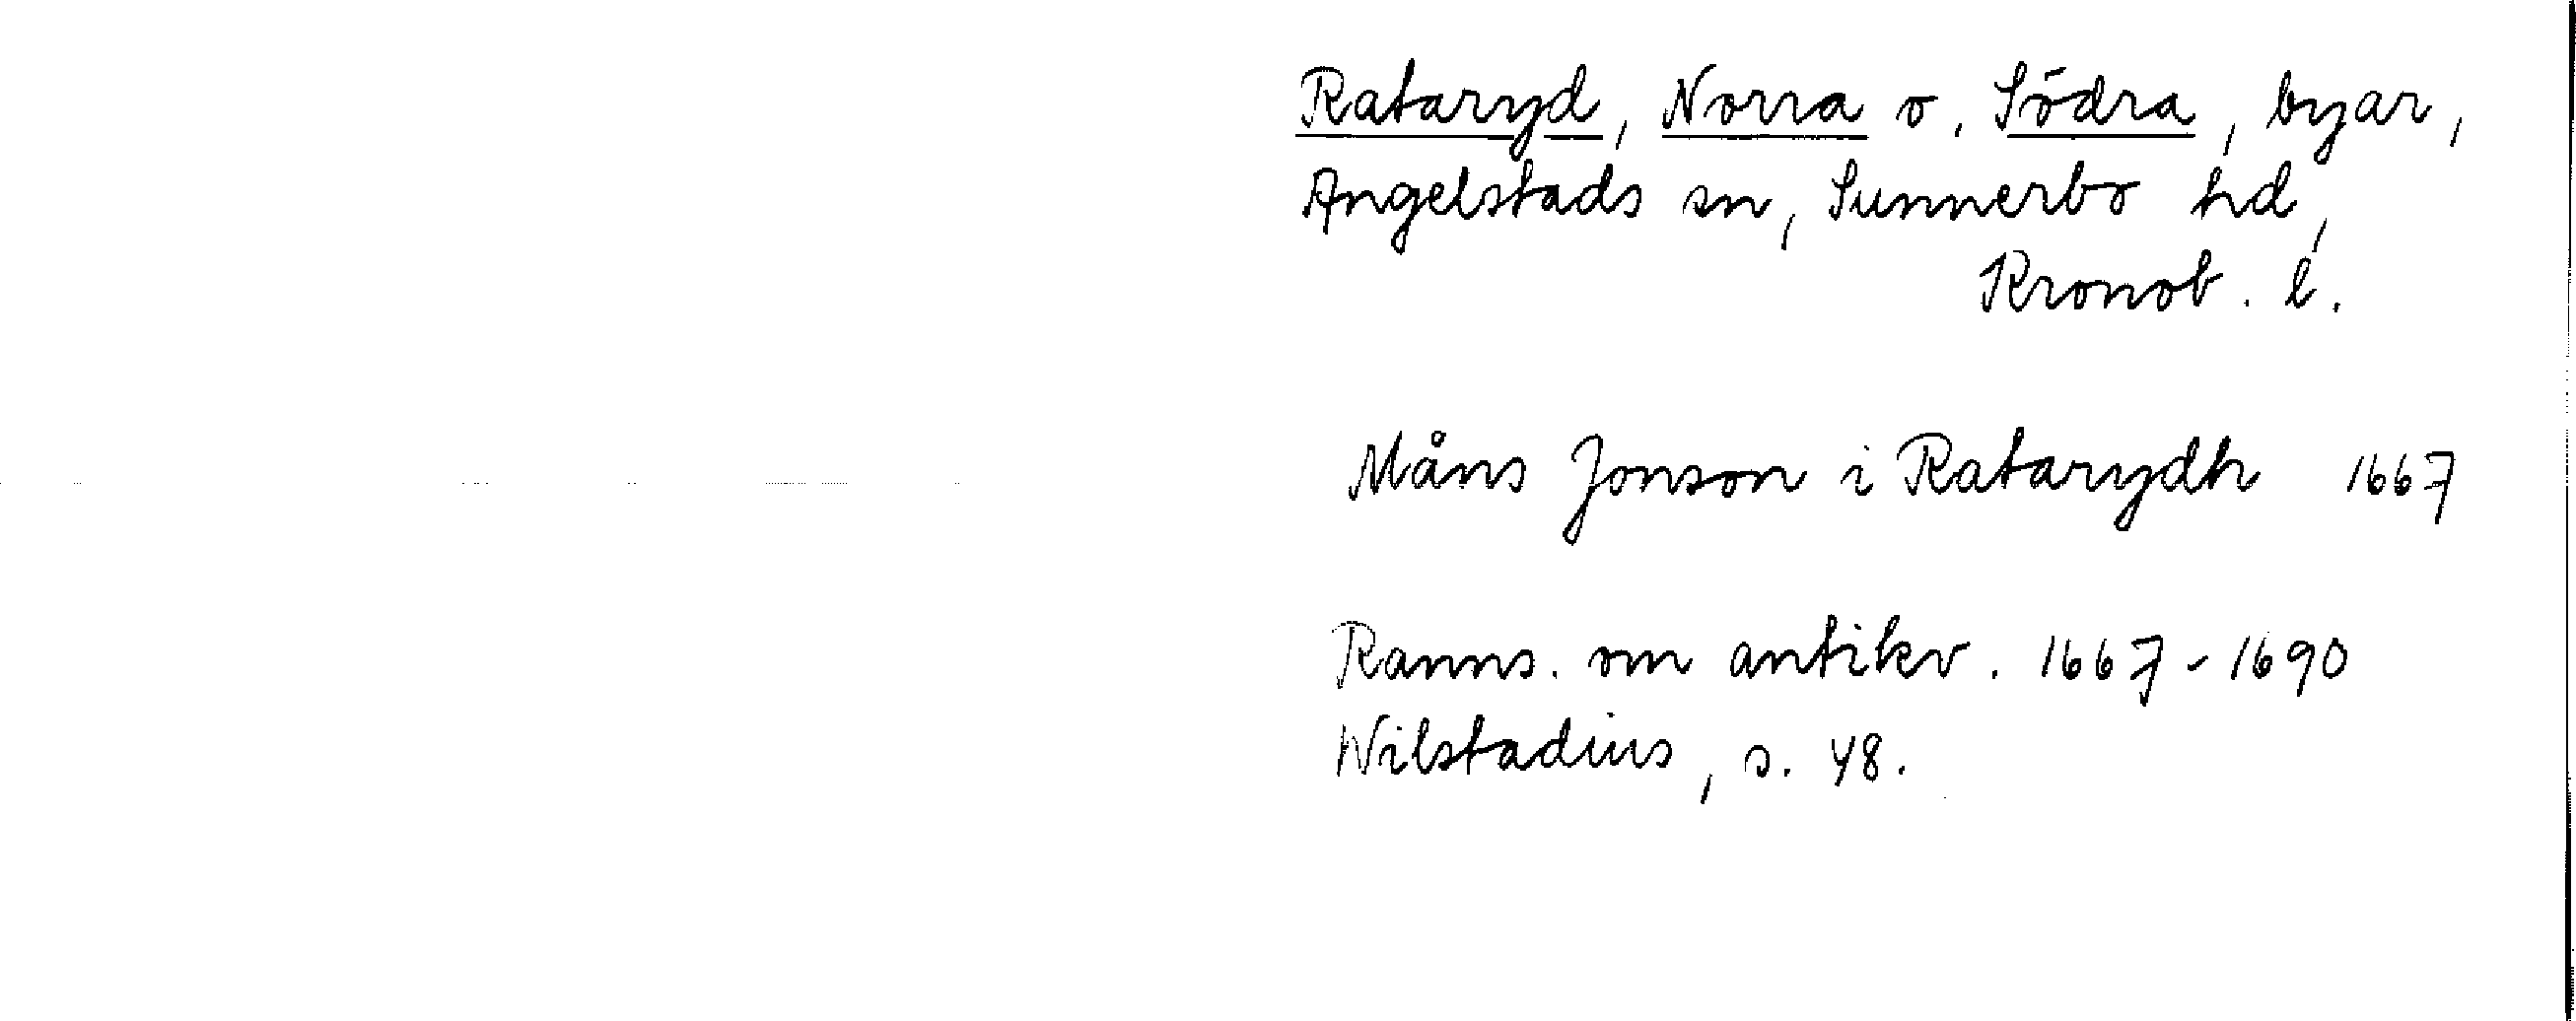 Rataryd, Norra o. Södra, byar,
Angelstads sn, Sunnerbo hd,
Kronob. l.
Måns Jonson i Ratarydh 1667
Ranns. om antikv. 1667-1690
Wilstadius, s. 48.